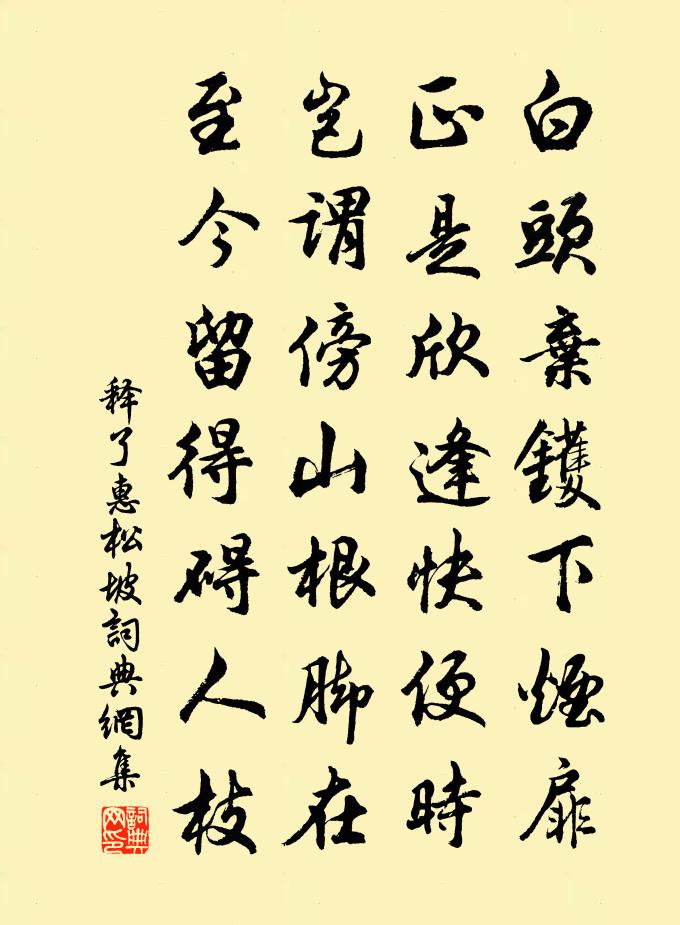 白頭棄钁下煙扉
正是欣逢快便時
豈謂傍山根脚在
至今留得碍人枝
释了惠松坡詞典網集
詞典網印